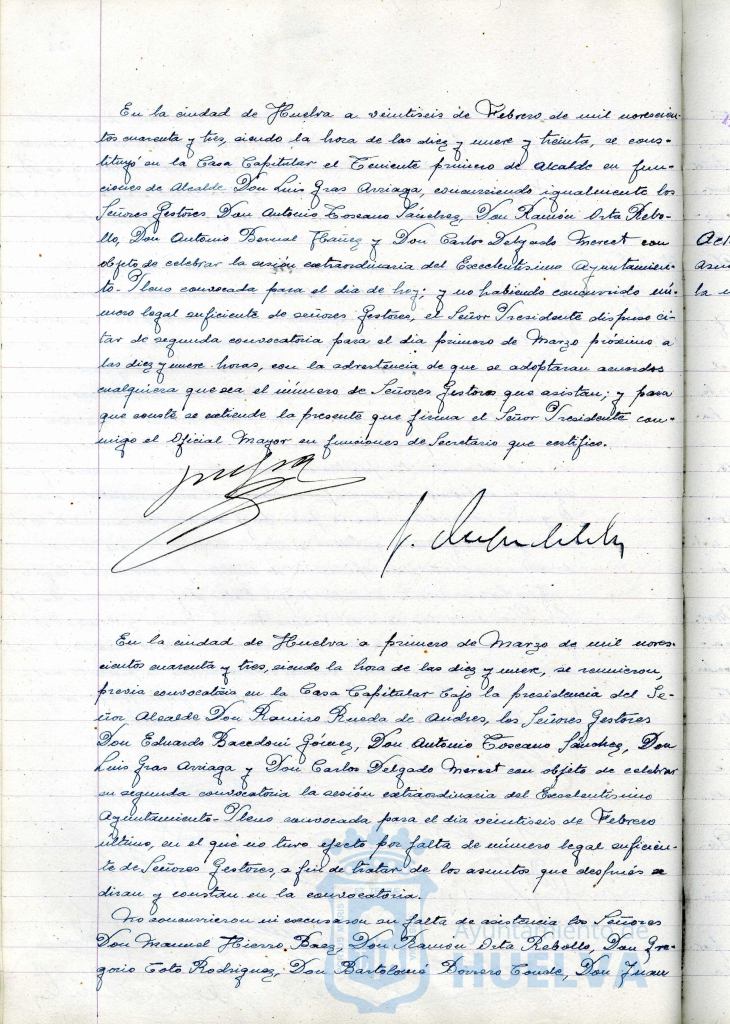 En la ciudad de Huelva a veintiseis de Febrero de mil novescien-
tos cuarenta y tres, siendo la hora de las diez y nueve y treinta, se cons-
tituyó en la Casa Capitular el Teniente primero de Alcalde en fun-
ciones de Alcalde Don Luis Gras Arriaga, concurriendo igualmente los
Señores Gestores Don Antonio Toscano Sánchez, Don Ramón Orta Rebo-
llo, Don Antonio Bernal Ibáñez y Don Carlos Delgado Merset con
objeto de celebrar la sesión extraordinaria del Excelentísimo Ayuntamien-
to-Pleno convocada para el dia de hoy; y no habiendo concurrido nú-
mero legal suficiente de señores Gestores, el Señor Presidente dispuso ci-
tar de segunda convocatoria para el dia primero de Marzo próximo a
las diez y nueve horas, con la advertencia de que se adoptaran acuerdos
cualquiera que sea el número de Señores Gestores que asistan; y para
que conste se extiende la presente que firma el Señor Presidente con-
migo el Oficial Mayor en funciones de Secretario que certifico.
En la ciudad de Huelva a primero de Marzo de mil noves-
cientos cuarenta y tres, siendo la hora de las diez y nueve, se reunieron,
previa convocatoria en la Casa Capitular bajo la presidencia del Se-
ñor Alcalde Don Ramiro Rueda de Andres, los Señores Gestores
Don Eduardo Bacedoni Gómez, Don Antonio Toscano Sánchez, Don
Luis Gras Arriaga y Don Carlos Delgado Merset con objeto de celebrar
en segunda convocatoria la sesión extraordinaria del Excelentísimo
Ayuntamiento-Pleno convocada para el dia veintiseis de Febrero
último, en el que no tuvo efecto por falta de número legal suficien-
te de Señores Gestores, a fin de tratar de los asuntos que después se
diran y constan en la convocatoria.
No concurrieron ni excusaron su falta de asistencia los Señores
Don Manuel Hierro Baez, Don Ramón Orta Rebollo, Don Gre-
gorio Toto Rodriguez, Don Bartolomé Borrero Conde, Don Juan
Ayuntamiento de
HUELVA